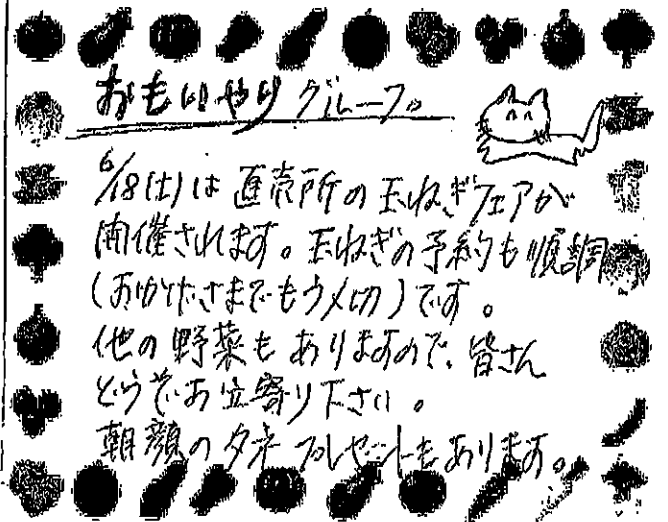 おもいやりグループ
6/18(土)は直売所の玉ねぎフェアが
開催されます。玉ねぎの予約も順調
(おかげさまでもう〆切)です。
他の野菜もありますので、皆さん
どうぞお立寄り下さい。
朝顔のタネプレゼントもあります。